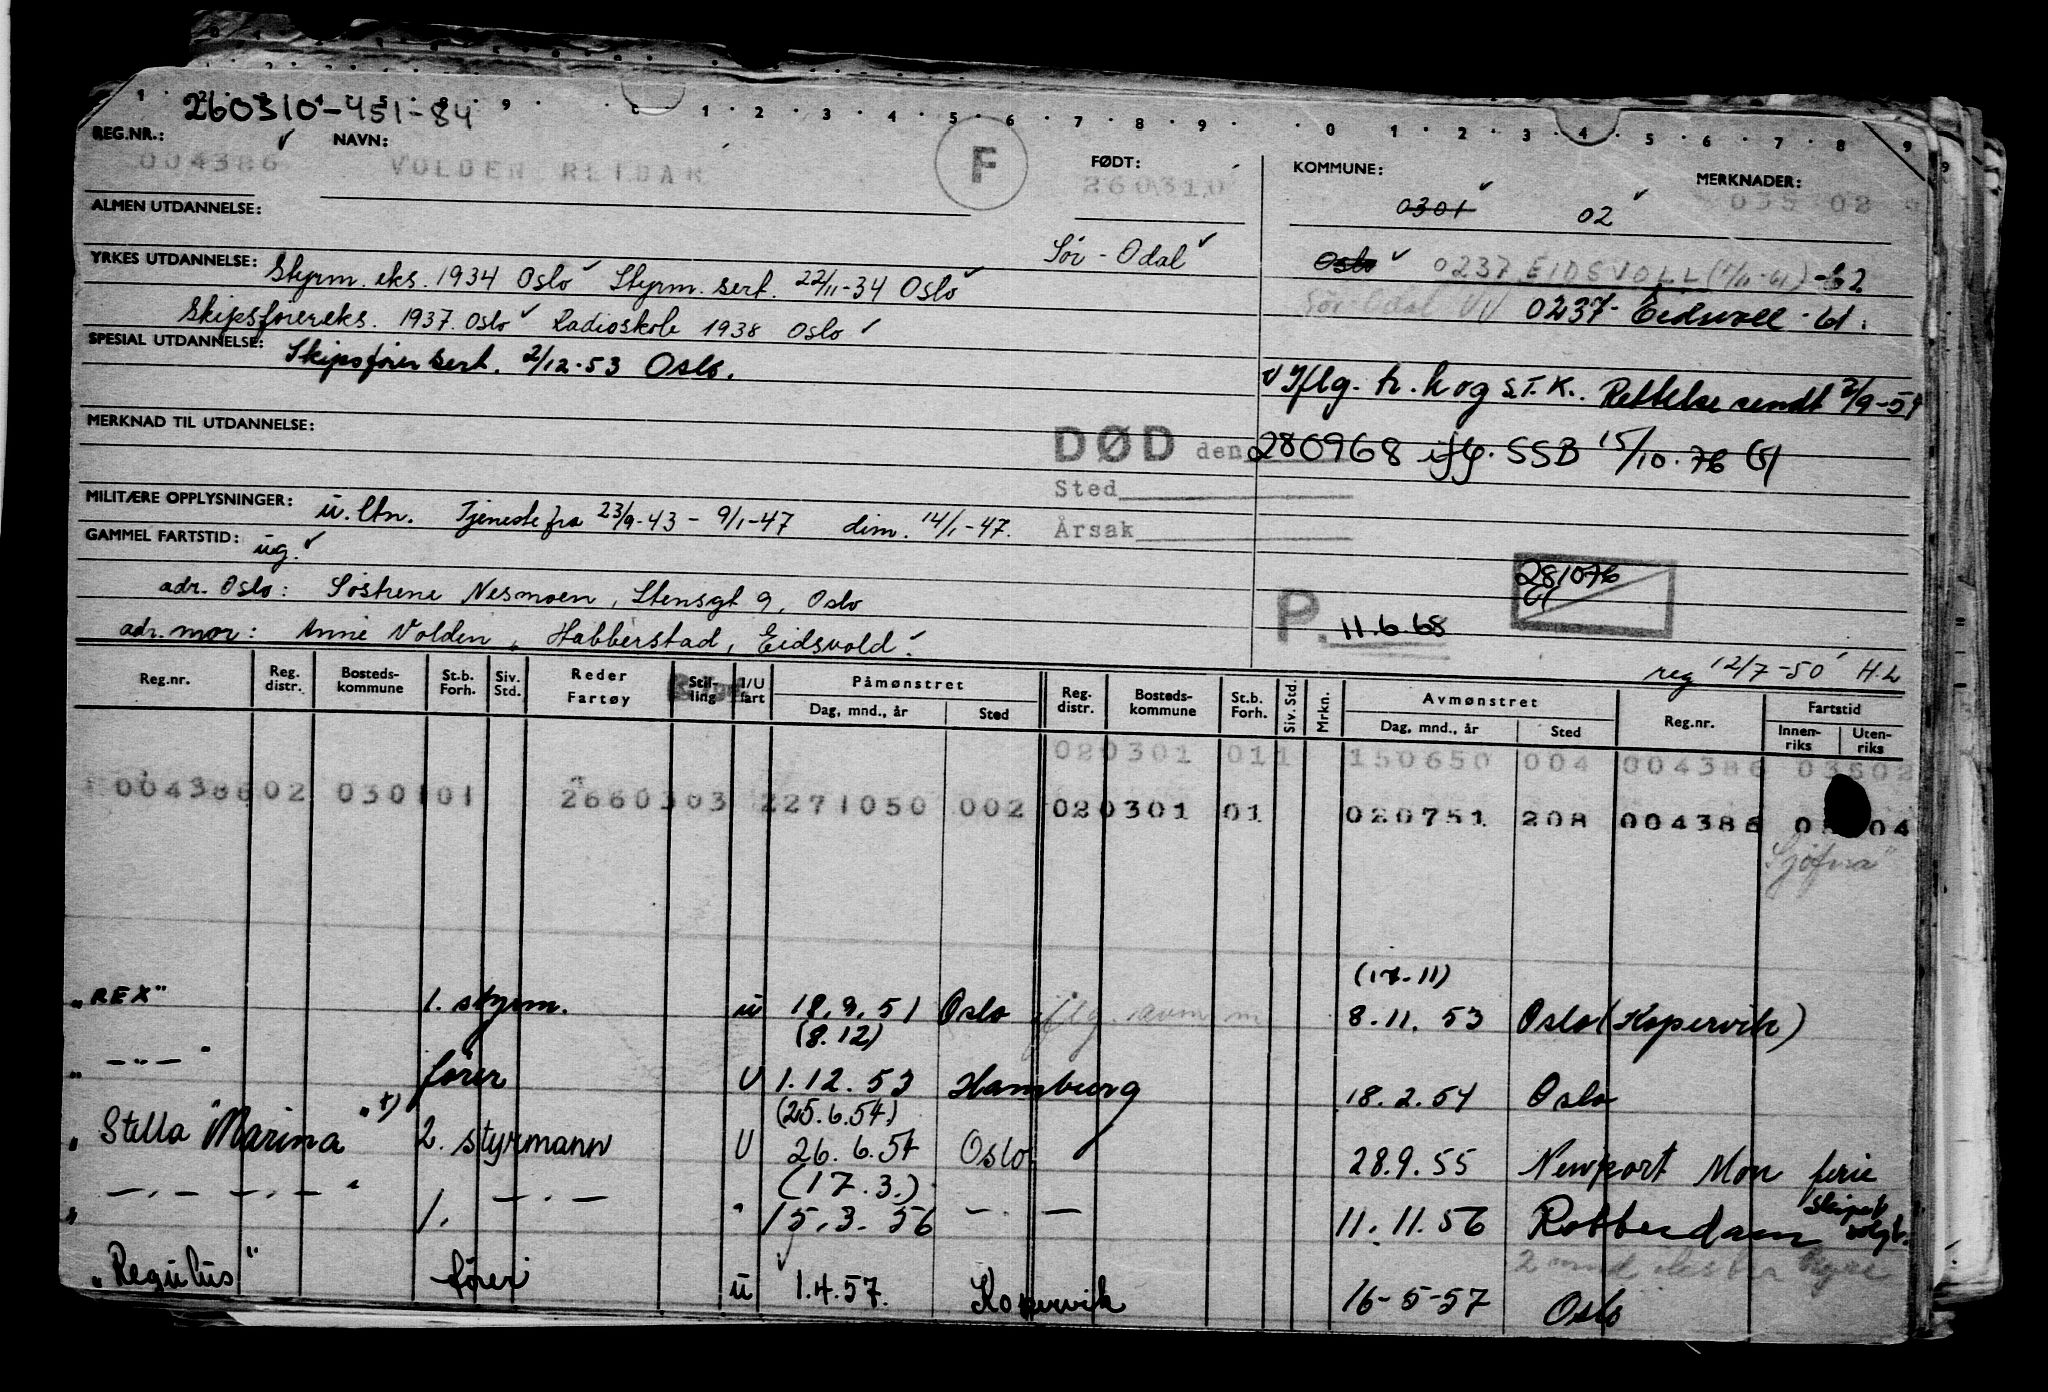 260310-451-84
REG.NR.: NAVN: F FØDT: KOMMUNE: MERKNADER:
004386 VOLDEN REIDAR 260310 0301 02 035 02
ALMEN UTDANNELSE:
Sør-Odal Oslo 0237 EIDSVOLL (1/11-61) -62
YRKES UTDANNELSE: Styrm. eks. 1934 Oslo Styrm. sert. 22/11-34 Oslo
Sør-Odal 0237 Eidsvoll -61.
Skipsførereks. 1937. Oslo Radioskole 1938 Oslo
SPESIAL UTDANNELSE: Skipsfører sert. 2/12-53 Oslo.
Iflg. tr. k og S.T.K. Rettelse sendt 2/9-54
MERKNAD TIL UTDANNELSE:
DØD den 280968 iflg. SSB 15/10.76
Sted
MILITÆRE OPPLYSNINGER: u. ltn. Tjeneste fra 23/9-43 - 9/1-47 dim. 14/1-47.
Årsak
GAMMEL FARTSTID: ug.
281076
adr. Oslo: Søstrene Nesmoen, Stensgt 9, Oslo
P. 11.6.68
adr. mor: Anne Volden, Habberstad, Eidsvold.
reg 12/7-50 H.L
Reg.nr. Reg. distr. Bosteds-kommune St.b. Forh. Siv. Std. Reder Fartøy Stilling I/U fart Påmønstret Dag, mnd., år Sted Reg. distr. Bosteds-kommune St.b. Forh. Siv. Std. Mrkn. Avmønstret Dag, mnd., år Sted Reg.nr. Fartstid Innen-riks Uten-riks
020301 011 150650 004 004386 03502
00438602 030101 2660303 2271050 002 020301 01 020751 208 004386 04
"Sjøfna"
(17.11)
"REX" 1. styrm. u 18.9.51 Oslo iflg. avm m 8.11.53 Oslo (Kopervik)
(8.12)
" — " — " fører U 1.12.53 Hamburg 18.2.54 Oslo
(25.6.54)
"Stella Marina" +) 2. styrmann U 26.6.54 Oslo 28.9.55 Newport Mon ferie
(17.3.)
" —.—.— " 1. —.— " 15.3.56 —.— 11.11.56 Rotterdam skipet solgt.
2 mnd
"Regulus" fører u 1.4.57. Kopervik 16-5-57 Oslo